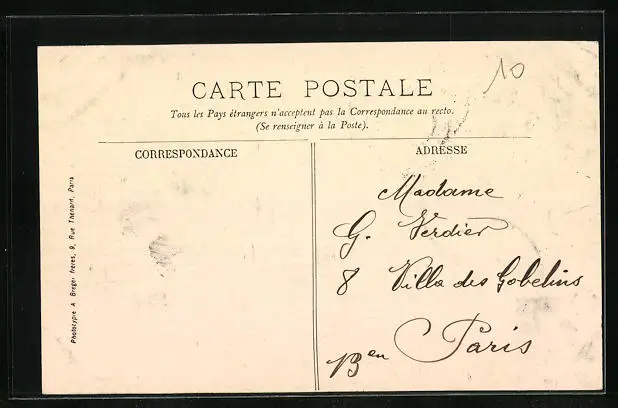 10
CARTE POSTALE
Tous les Pays étrangers n'acceptent pas la Correspondance au recto.
(Se renseigner à la Poste).
CORRESPONDANCE
Phototypie A Breger frères, 9, Rue Thénard, Paris
ADRESSE
Madame
G. Verdier
8 Villa des Gobelins
Paris
13en